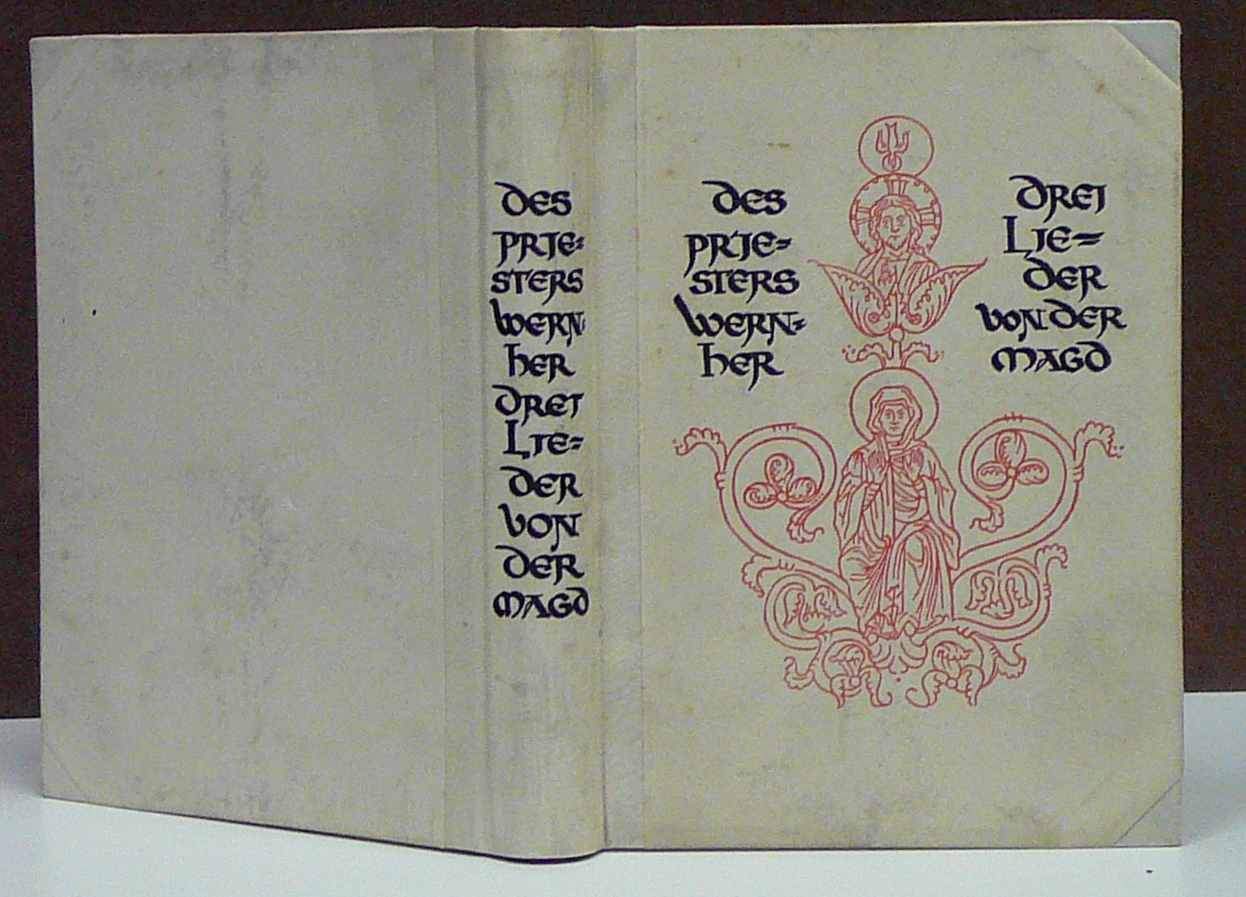 DES
PRIE=
STERS
WERN=
HER
DREI
LIE=
DER
VON
DER
MAGD
DES
PRIE=
STERS
WERN=
HER
DREI
LIE=
DER
VON DER
MAGD